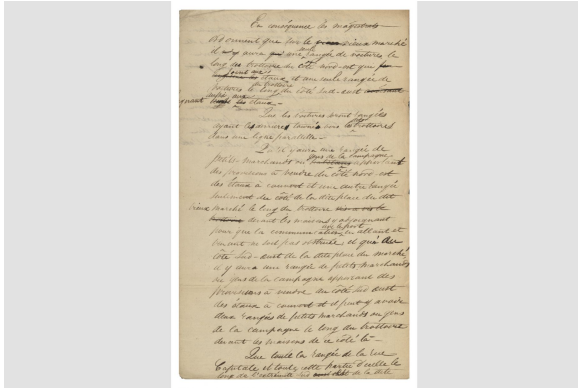 En conséquence les magistrats
ordonnent que sur le vieux marché
il y aura une seule rangée de voitures le
long des trottoirs du côté nord-est que
étaux et une seule rangée de
voitures le long du trottoir du côté sud-ouest
étaux
Que les voitures seront rangées
ayant les arrières tournés vers le trottoirs
dans une ligne parallelle
Qu'il y aura une rangée de
petits marchands ou gens de la campagne
des provisions à vendre du côté nord-est
des étaux à couvert et une autre rangée
seulement du côté de la dite place du dit
vieux marché le long du trottoire
devant les maisons y adjoignant
pour que la commune en allant et
venant ne soit pas obstruée et qu'au
côté Sud-ouest de la dite place du marché
il y aura une rangée de petits marchands
ou gens de la campagne ayant des
provisions à vendre du côté sud ouest
des étaux à couvert et il peut y avoir
deux rangées de petits marchands ou gens
de la campagne le long du trottoire
devant les maisons de ce côté là
Que toute la rangée de la rue
Capitale et toute cette partie d'icelle le
long de l'extremité de la dite